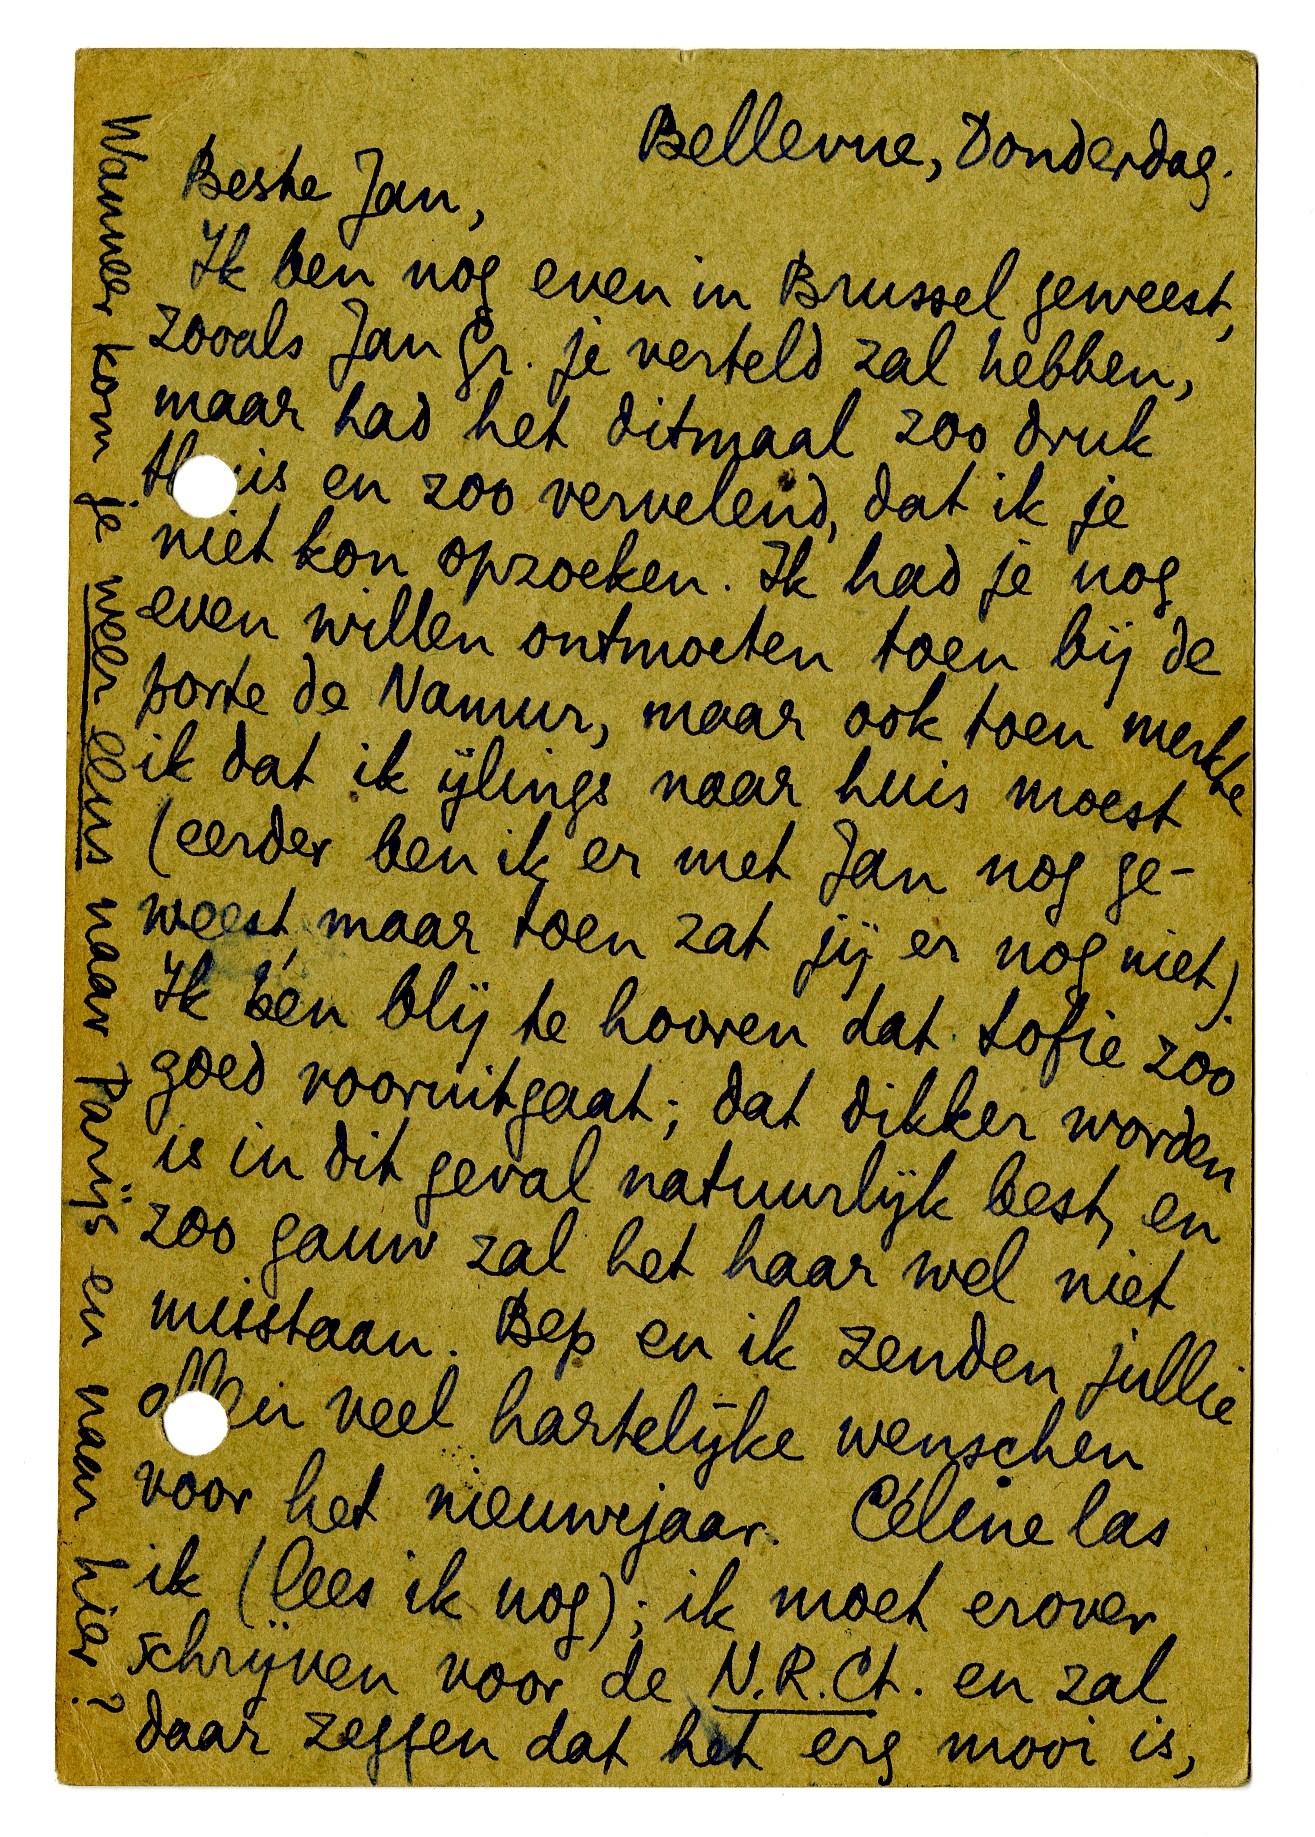 Bellevue, Donderdag.
Beste Jan,
Ik ben nog even in Brussel geweest,
zooals Jan Gr. je verteld zal hebben,
maar had het ditmaal zoo druk
thuis en zoo vervelend, dat ik je
niet kon opzoeken. Ik had je nog
even willen ontmoeten toen bij de
porte de Namur, maar ook toen merkte
ik dat ik ijlings naar huis moest
(eerder ben ik er met Jan nog ge-
weest, maar toen zat jij er nog niet).
Ik ben blij te hooren dat Sofie zoo
goed vooruitgaat; dat dikker worden
is in dit geval natuurlijk best, en
zoo gauw zal het haar wel niet
misstaan. Bep en ik zenden jullie
allen veel hartelijke wenschen
voor het nieuwejaar. Céline las
ik (lees ik nog); ik moet erover
schrijven voor de N.R.Ct. en zal
daar zeggen dat het erg mooi is,
Wanneer kom je weer eens naar Parijs en naar hier?